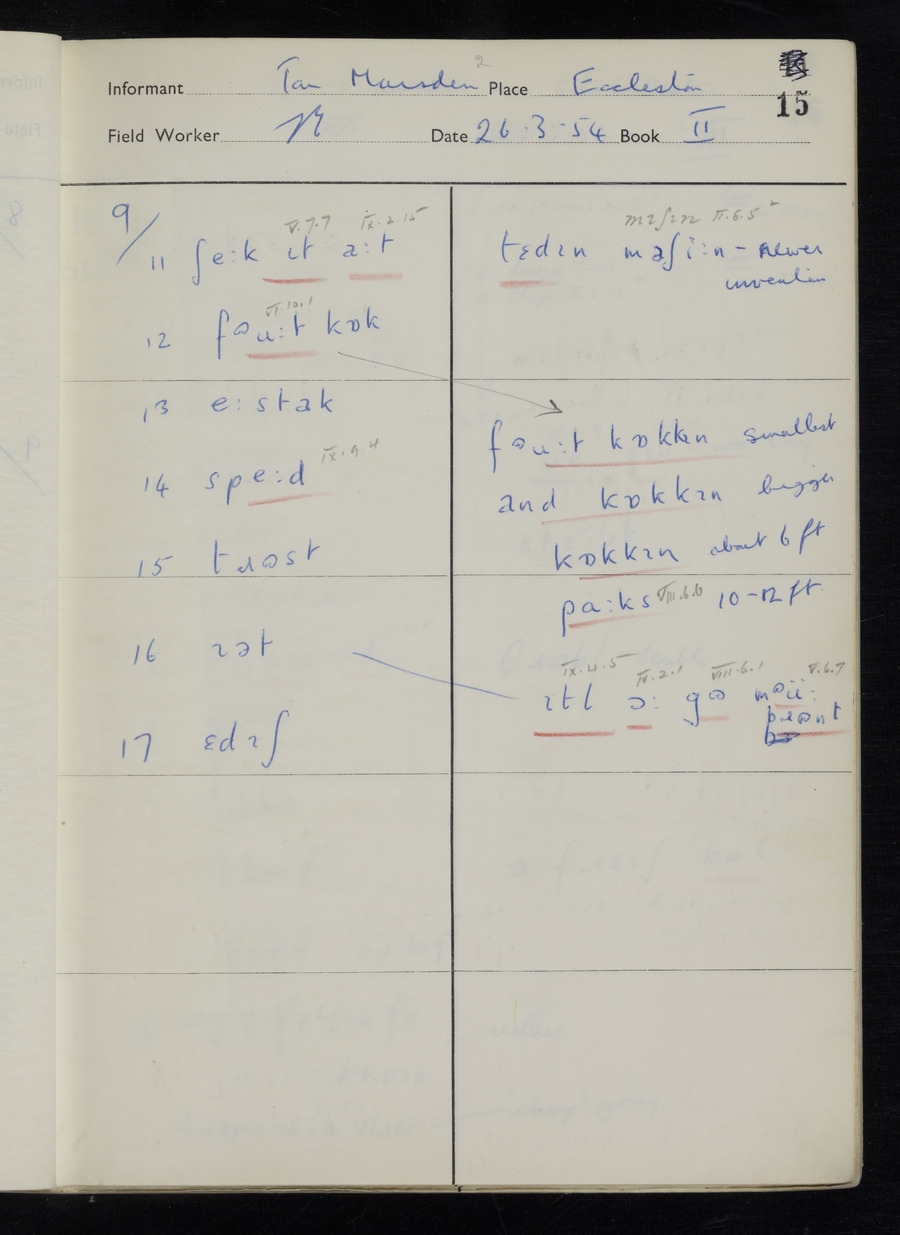 Informant Tom Marsden 2 Place Eccleston
15
Field Worker Date 26·3·54 Book II
9/
V.7.7 IX.2.15
11 ʃe:k ɪt a:t
VI.10.1
12 fɒu:t kɒk
13 e:stak
14 spe:d IX.9.4
15 tɹɒst
16 ɹət
17 ɛdɪʃ
II.6.5
tɛdɪn məʃi:n – newer
invention
fɒu:t kɒkkɪn smallest
and kɒkkɪn bigger
kɒkkɪn about 6 ft
pa:ks VIII.6.6 10–12 ft.
IX.4.5 IV.2.1 VIII.6.1 V.6.7
ɪtl ɔ: gɒ